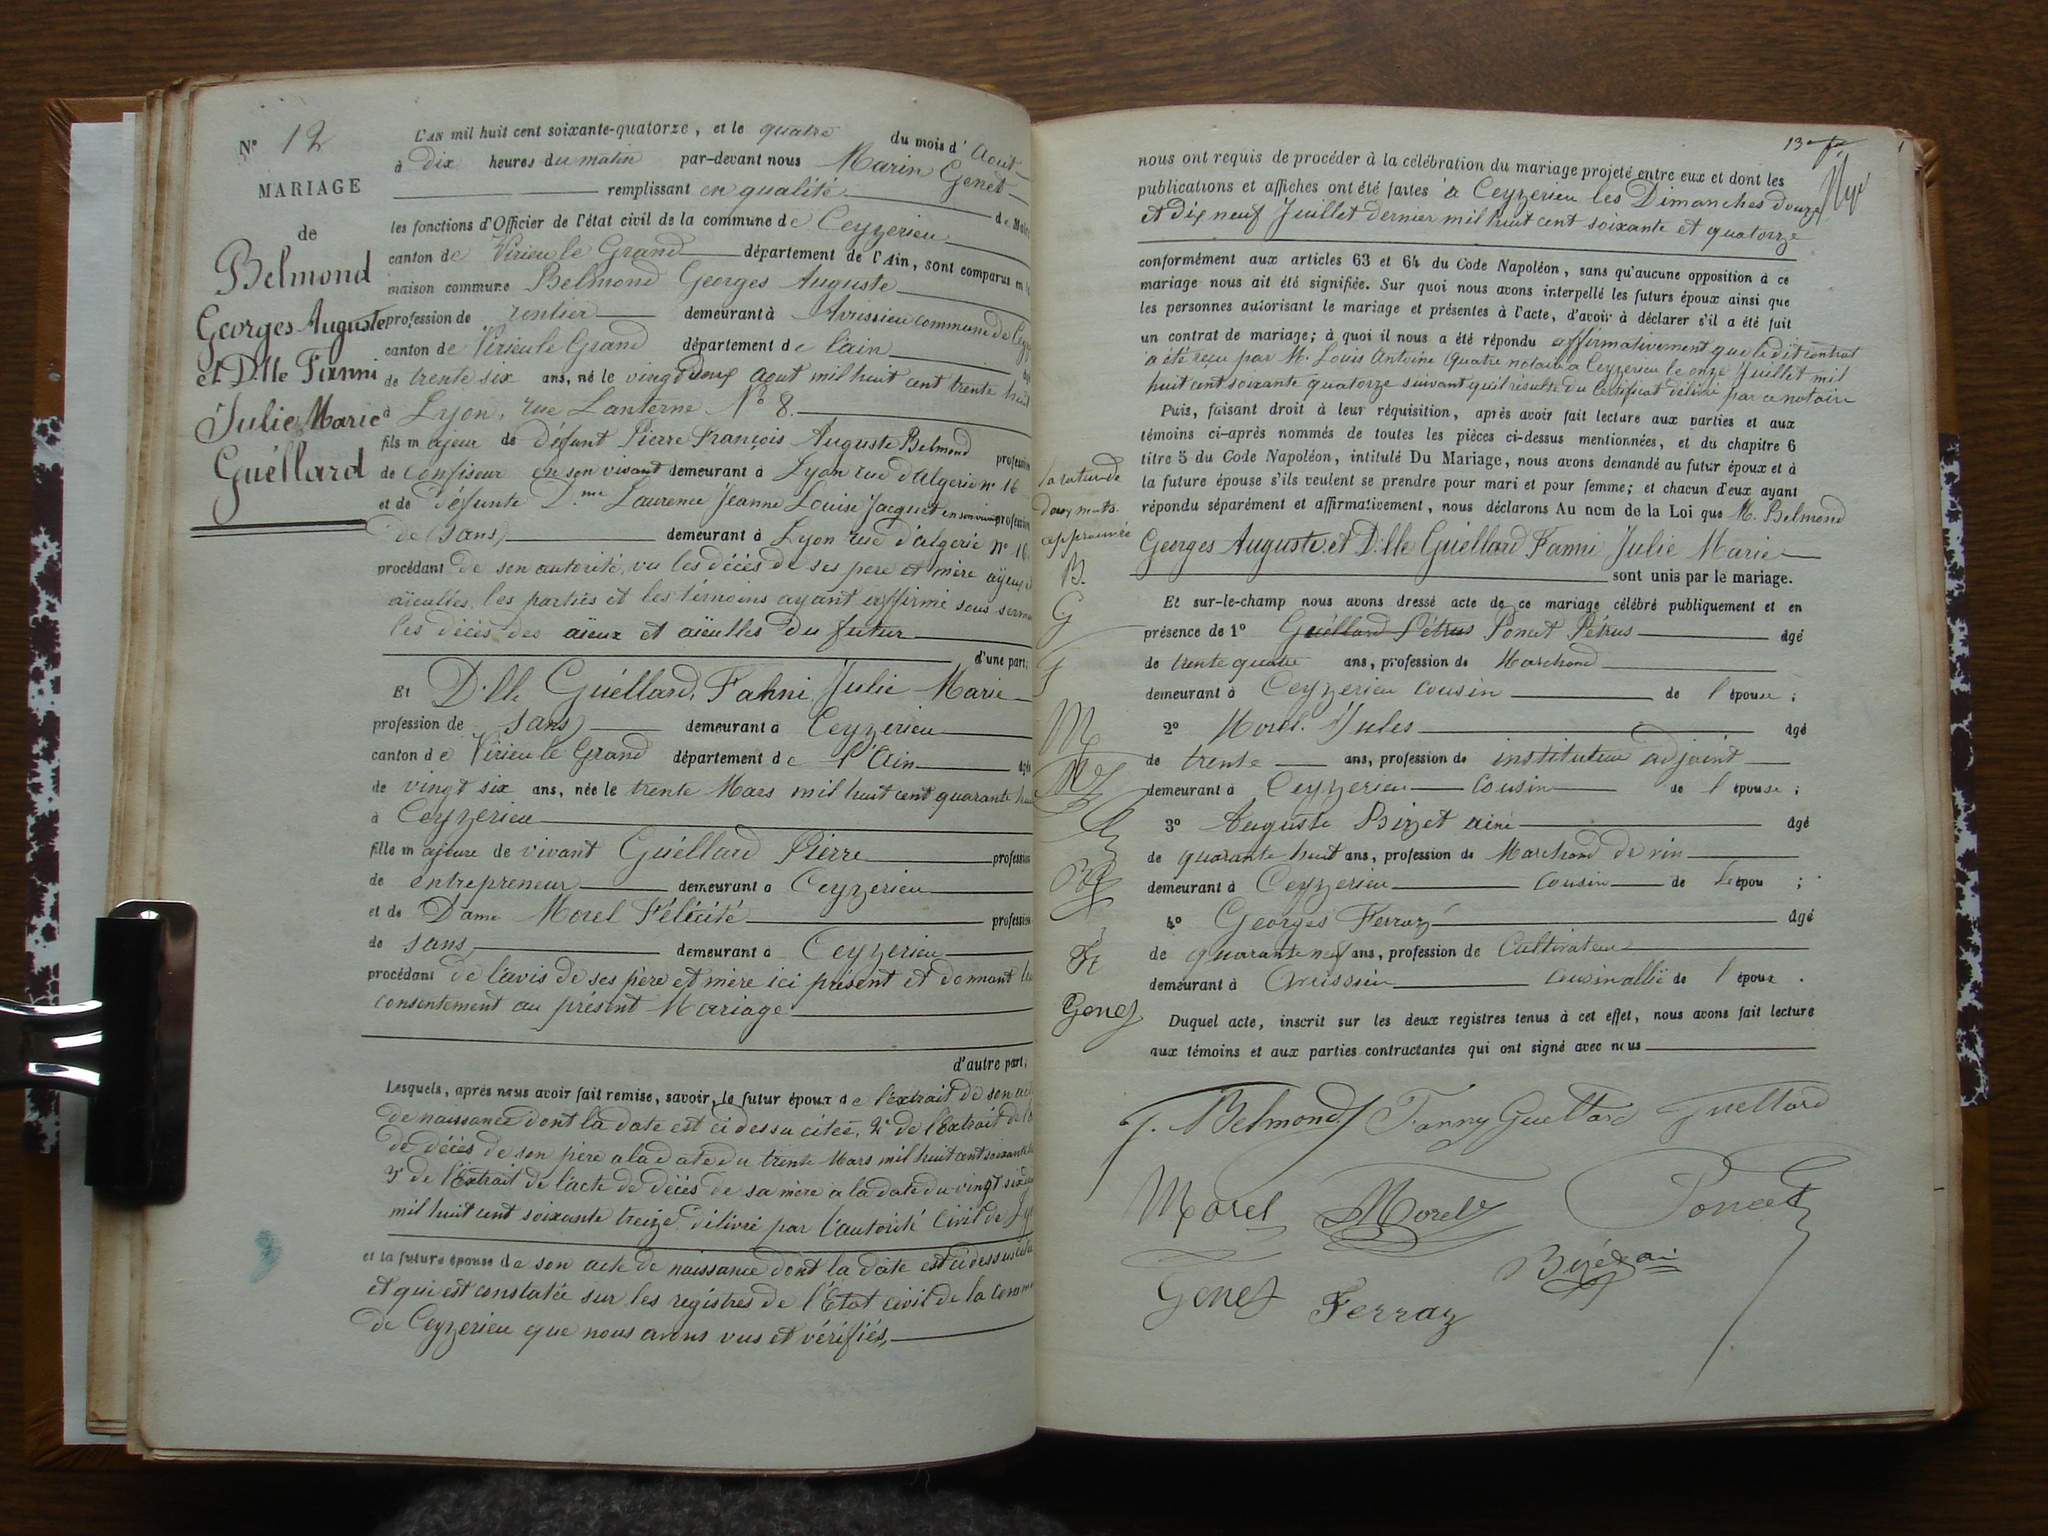 N° 12
MARIAGE
de
Belmond
Georges Auguste
et Dlle Fanni
Julie Marie
Guéllard
L'AN mil huit cent soixante-quatorze, et le quatre du mois d'Aout
à dix heures du matin par-devant nous Marin Genet
remplissant en qualité de Maire
les fonctions d'Officier de l'état civil de la commune de Ceyzerieu
canton de Virieu le Grand département de l'Ain, sont comparus en la
maison commune Belmond Georges Auguste
profession de rentier demeurant à Avrissieu commune de Ceyz
canton de Virieu le Grand département de l'ain
de trente six ans, né le vingt deux Aout mil huit cent trente huit
à Lyon, rue Lanterne N° 8.
fils majeur de défunt Pierre François Auguste Belmond profession
de Confiseur en son vivant demeurant à Lyon rue d'Algerie n° 16
et de défunte Dme Laurence Jeanne Louise Jacquet en son vivant profession
de (sans) demeurant à Lyon rue d'algerie n° 16.
procédant de son autorité, vu les décès de ses pere et mère ayeux et
aïeulles, les parties et les témoins ayant affirmé sous serment
les décès des aïeux et aïeulles du futur
d'une part;
Et Dlle Guéllard, Fanni Julie Marie
profession de sans demeurant à Ceyzerieu
canton de Virieu le Grand département de l'Ain âgée
de vingt six ans, née le trente Mars mil huit cent quarante huit
à Ceyzerieu
fille majeure de vivant Guéllard Pierre profession
de entrepreneur demeurant à Ceyzerieu
et de Dame Morel Félicité profession
de sans demeurant à Ceyzerieu
procédant de l'avis de ses père et mère ici présent et donnant leur
consentement au présent Mariage
d'autre part;
Lesquels, après nous avoir fait remise, savoir, le futur époux de l'extrait de son acte
de naissance dont la date est ci dessu citée, 2° de l'Extrait de l'
de décès de son père a la date du trente Mars mil huit cent soixante
3° de l'Extrait de l'acte de décès de sa mère a la date du vingt six
mil huit cent soixante treize délivré par l'autorité Civil de Ly
et la future épouse de son acte de naissance dont la date est ci dessus citée
et qui est constatée sur les registres de l'Etat civil de la Commune
de Ceyzerieu que nous avons vus et vérifiés,
13e
nous ont requis de procéder à la célébration du mariage projeté entre eux et dont les
publications et affiches ont été faites à Ceyzerieu les Dimanches douze
et dix neuf Juillet dernier mil huit cent soixante et quatorze
conformément aux articles 63 et 64 du Code Napoléon, sans qu'aucune opposition à ce
mariage nous ait été signifiée. Sur quoi nous avons interpellé les futurs époux ainsi que
les personnes autorisant le mariage et présentes à l'acte, d'avoir à déclarer s'il a été fait
un contrat de mariage; à quoi il nous a été répondu affirmativement que le dit contrat
a été reçu par M. Louis Antoine Quatre notaire a Ceyzerieu le onze Juillet mil
huit cent soixante quatorze suivant qu'il résulte du Certificat délivré par ce notaire
Puis, faisant droit à leur réquisition, après avoir fait lecture aux parties et aux
témoins ci-après nommés de toutes les pièces ci-dessus mentionnées, et du chapitre 6
titre 5 du Code Napoléon, intitulé Du Mariage, nous avons demandé au futur époux et à
la future épouse s'ils veulent se prendre pour mari et pour femme; et chacun d'eux ayant
répondu séparément et affirmativement, nous déclarons Au nom de la Loi que M. Belmond
Georges Auguste et Dlle Guéllard Fanni Julie Marie
sont unis par le mariage.
Et sur-le-champ nous avons dressé acte de ce mariage célébré publiquement et en
présence de 1° Guéllard Pétrus Poncet Pétrus âgé
de trente quatre ans, profession de Marchand
demeurant à Ceyzerieu cousin de l'épouse;
2° Morel Jules âgé
de trente ans, profession de instituteur adjoint
demeurant à Ceyzerieu cousin de l'épouse;
3° Auguste Bizet ainé âgé
de quarante huit ans, profession de Marchand de vin
demeurant à Ceyzerieu cousin de l'épou;
4° Georges Ferraz âgé
de quarante neuf ans, profession de Cultivateur
demeurant à Avrissieu cousin allié de l'époux.
Duquel acte, inscrit sur les deux registres tenus à cet effet, nous avons fait lecture
aux témoins et aux parties contractantes qui ont signé avec nous
la rature de
deux mots
approuvée
B.
G
G
M
M
Ft
Genet
G. Belmond Fanny Guellard Guellard
Morel Morel Poncet
Genet Ferraz Bizet ai